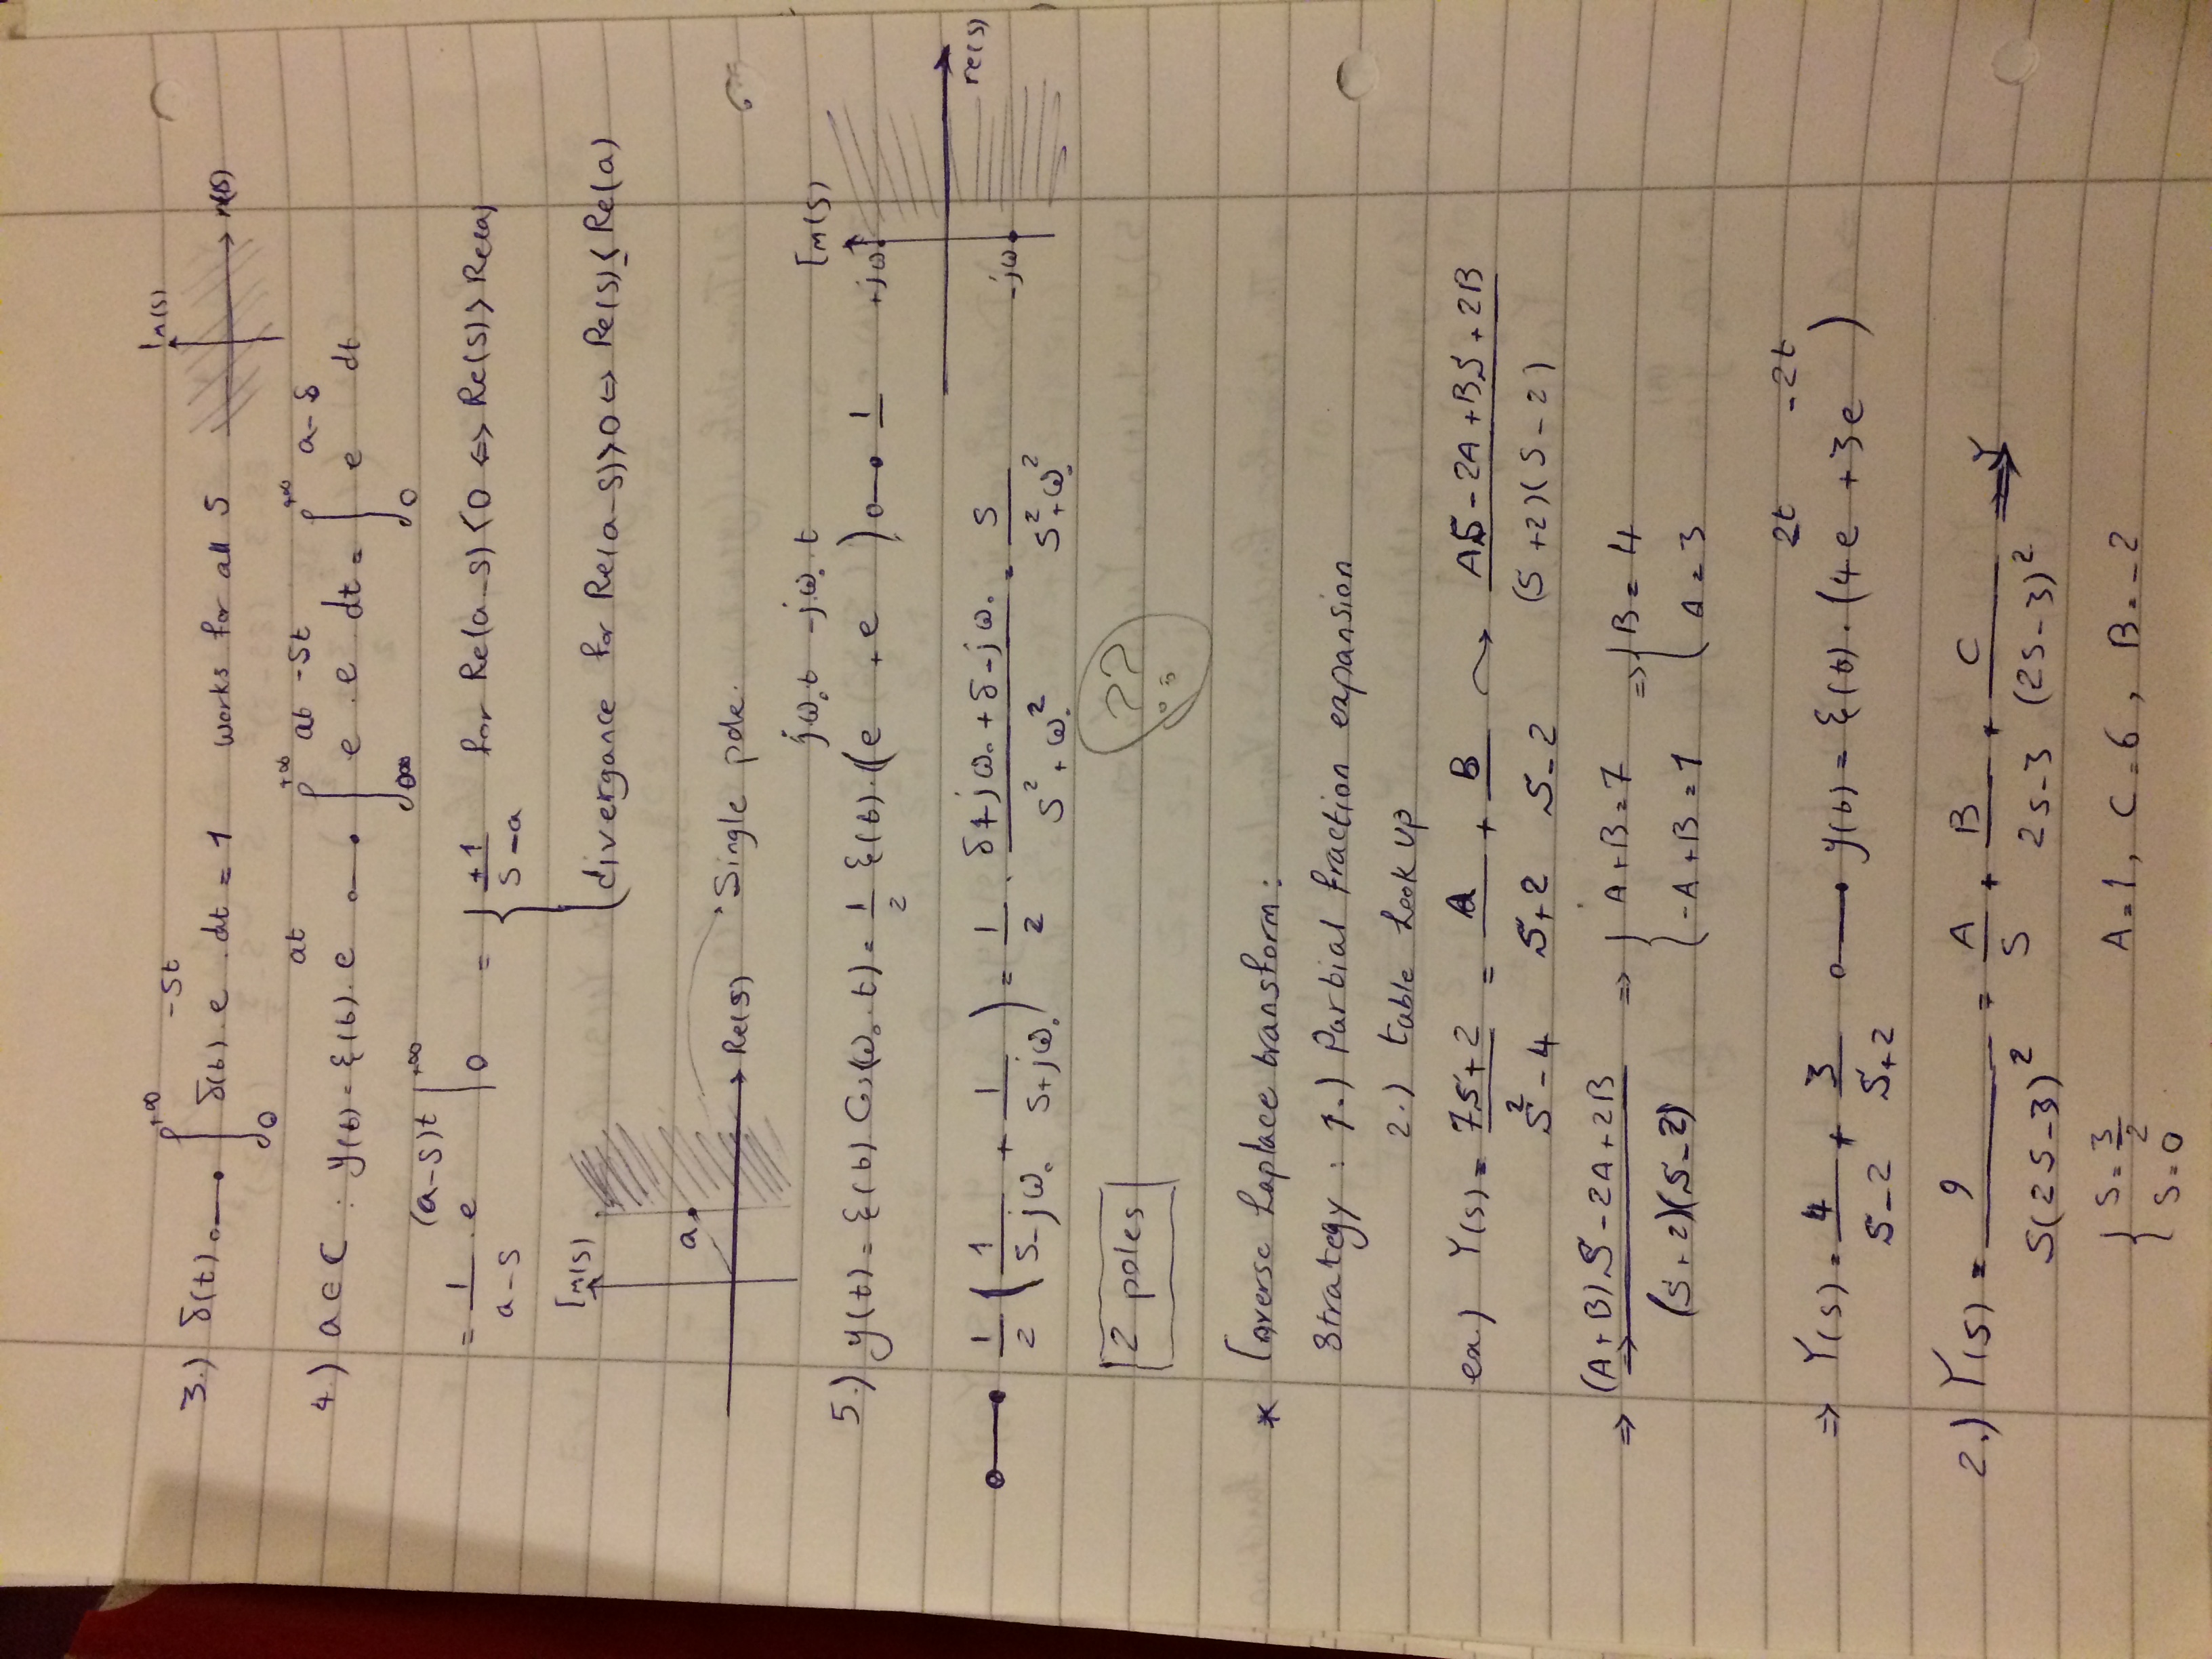 3.) δ(t) o—• ∫₀^{+∞} δ(t) · e^{-st} · dt = 1 works for all S Im(s) re(s)
4.) a ∈ C : y(t) = ξ(t) · e^{at} o—• ∫₀^{+∞} e^{at} · e^{-st} dt = ∫₀^{+∞} e^{a-s} dt
= 1/(a-s) · e^{(a-s)t} |₀^{+∞} = { +1/(s-a) for Re(a-s) < 0 ⇔ Re(s) > Re(a)
divergance for Re(a-s) > 0 ⇔ Re(s) ≤ Re(a)
Im(s)
a
Re(s) Single pole.
5.) y(t) = ξ(t) Cos(ω₀ t) = 1/2 ξ(t) · (e^{jω₀t} + e^{-jω₀t}) o—• 1 Im(s) +jω re(s) -jω
o—• 1/2 (1/(s-jω₀) + 1/(s+jω₀)) = 1/2 · (s+jω₀+s-jω₀)/(s²+ω₀²) = s/(s²+ω₀²)
2 poles ??
* Inverse Laplace transform:
Strategy : 1.) Partial fraction expansion
2.) table Look up
ex.) Y(s) = (7s+2)/(s²-4) = A/(s+2) + B/(s-2) ⤳ (AS-2A+BS+2B)/((s+2)(s-2))
⇒ ((A+B)S-2A+2B)/((s+2)(s-2)) ⇒ { A+B=7 ⇒ { B=4
-A+B=1 A=3
⇒ Y(s) = 4/(s-2) + 3/(s+2) o—• y(t) = ξ(t) · (4e^{2t} + 3e^{-2t})
2.) Y(s) = 9/(s(2s-3)²) = A/s + B/(2s-3) + C/(2s-3)² ⇒
{ s=3/2 A=1, C=6, B=-2
s=0